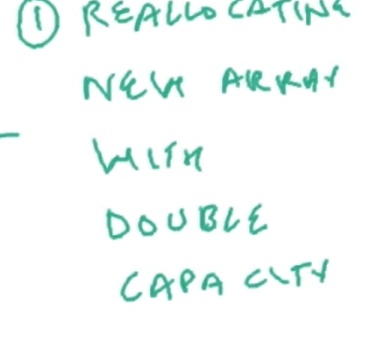 ① REALLOCATING
NEW ARRAY
WITH
DOUBLE
CAPACITY